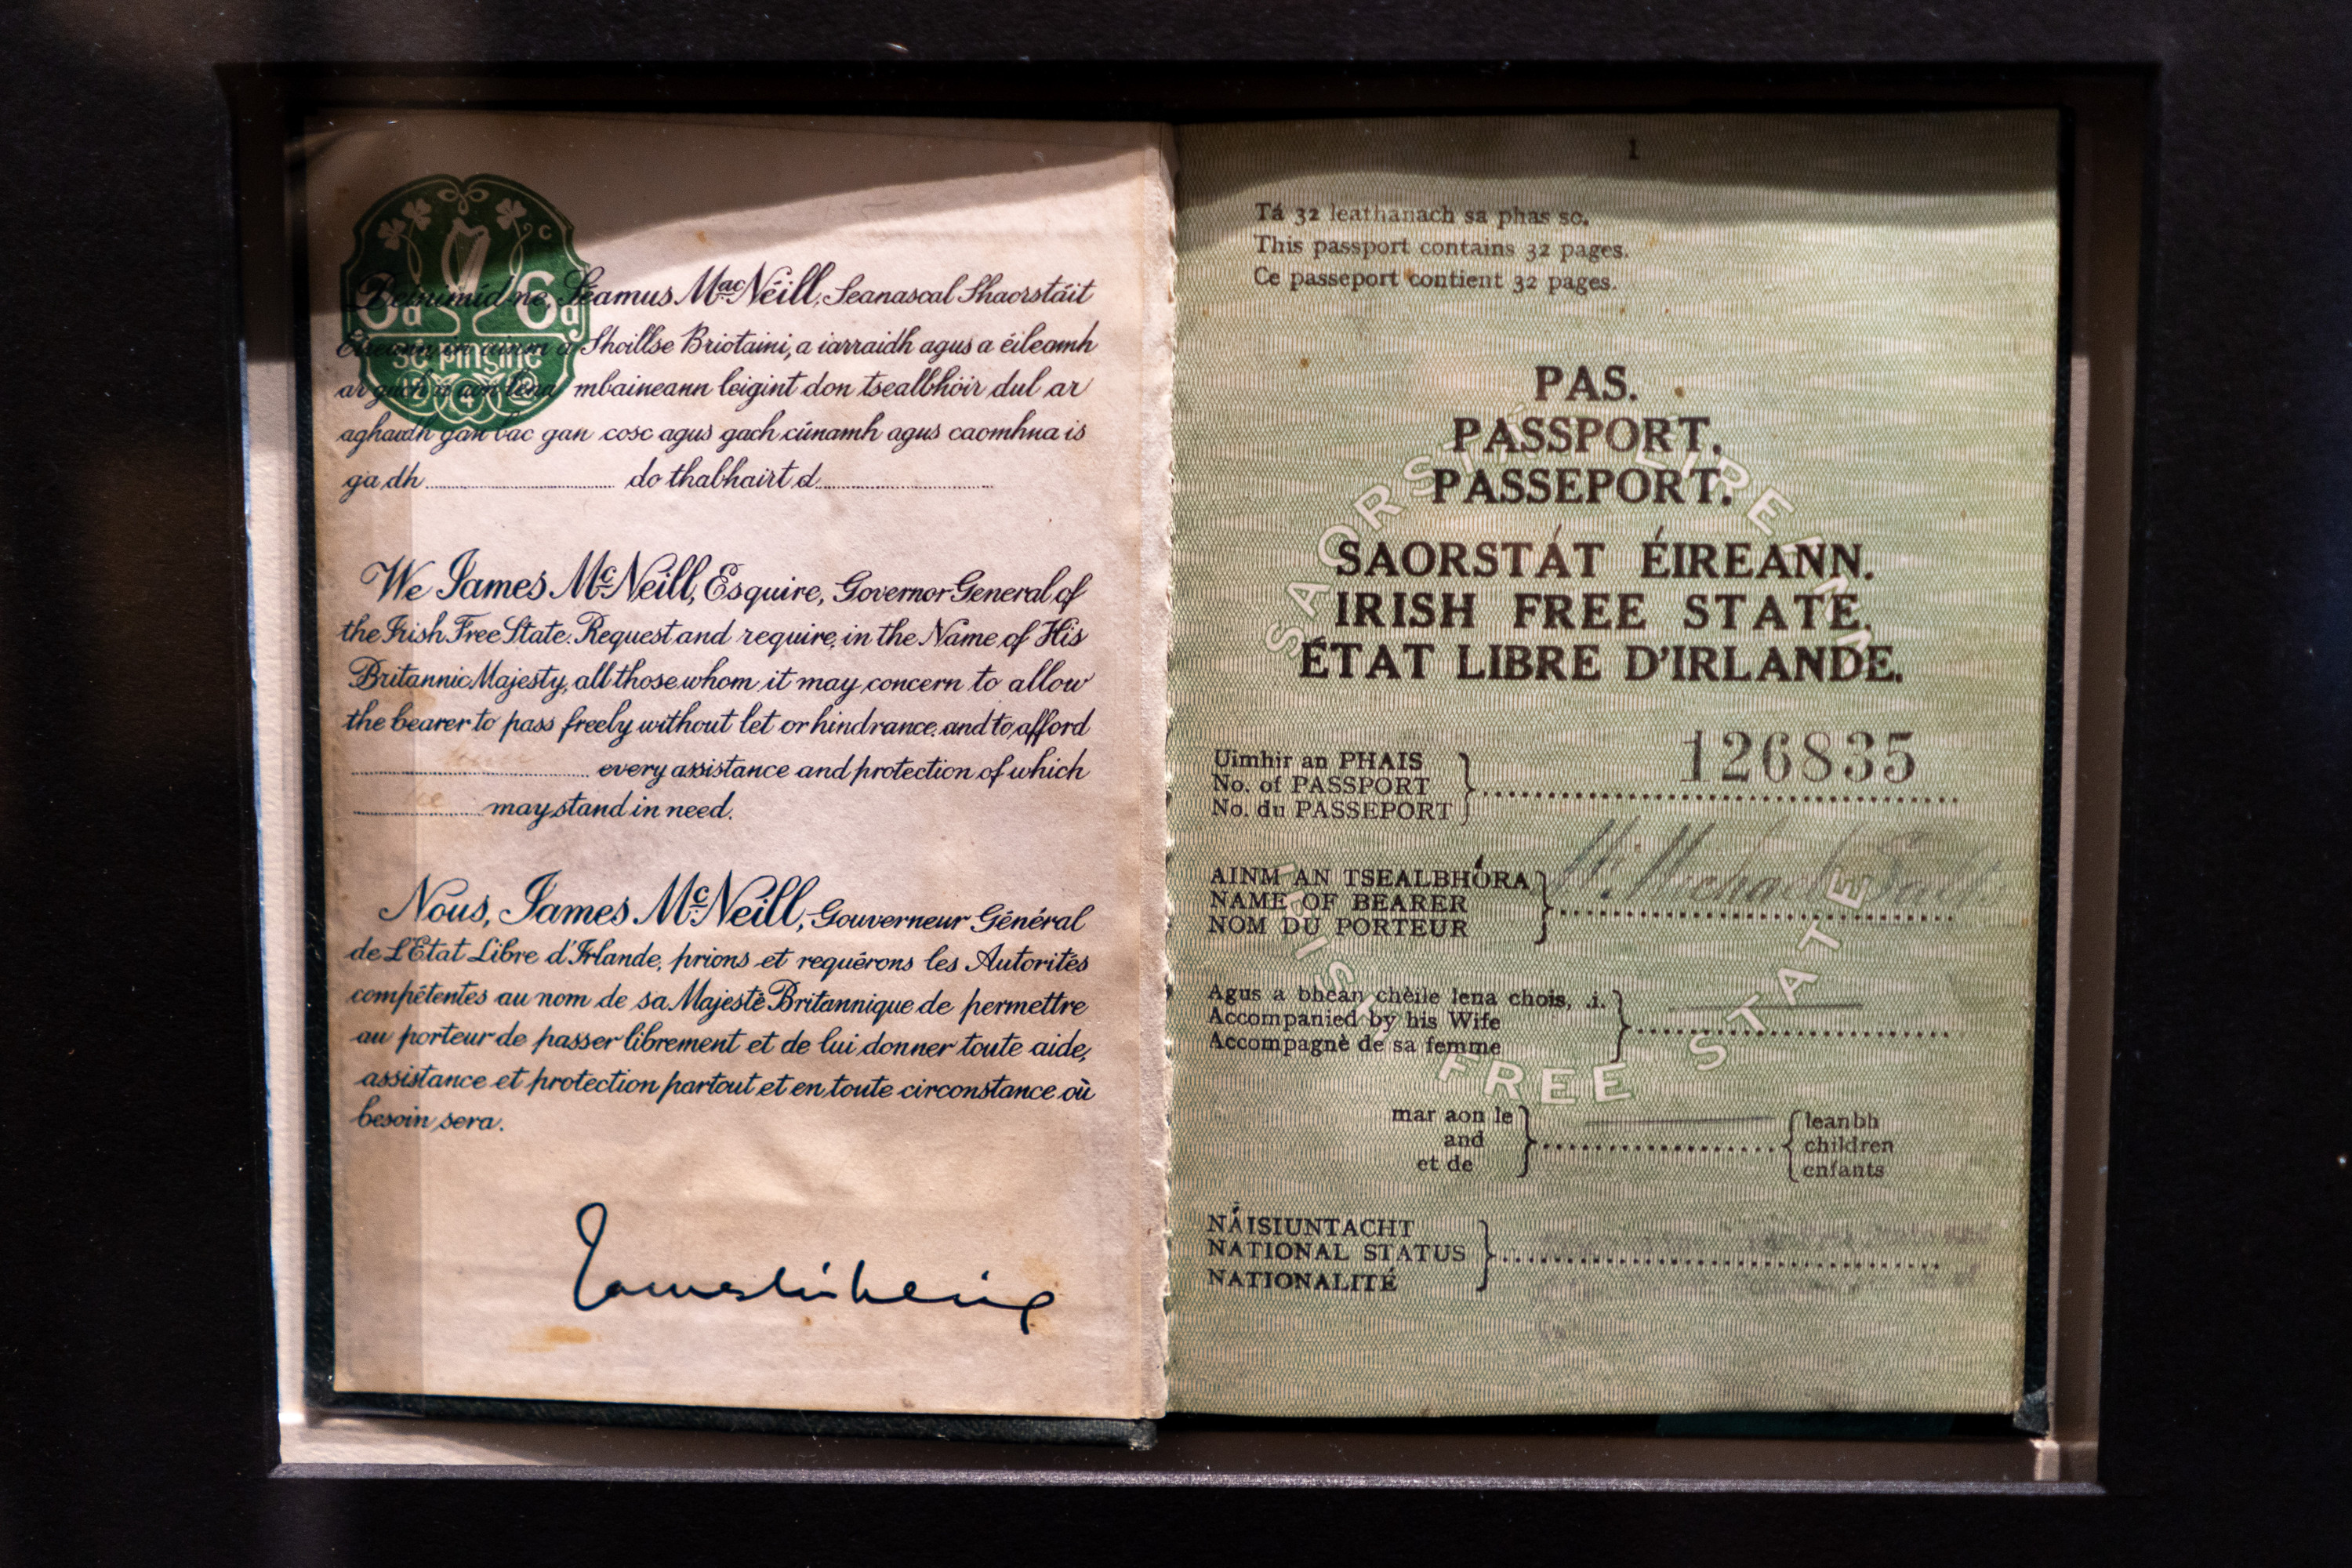 6d 6d
sé pingne
Beirimíd-ne, Séamus MacNéill, Seanascal Shaorstáit
Éireann in ainm a Shoillse Briotaini, a iarraidh agus a éileamh
ar gach n-aon lena mbaineann leigint don tsealbhóir dul ar
aghaidh gan bac gan cosc agus gach cúnamh agus caomhna is
gadh do thabhairt d
We James McNeill, Esquire, Governor-General of
the Irish Free State. Request and require, in the Name of His
Britannic Majesty, all those whom it may concern to allow
the bearer to pass freely without let or hindrance, and to afford
every assistance and protection of which
he may stand in need.
Nous, James McNeill, Gouverneur Général
de L'Etat Libre d'Irlande, prions et requérons les Autorités
compétentes au nom de sa Majesté Britannique de permettre
au porteur de passer librement et de lui donner toute aide,
assistance et protection partout et en toute circonstance où
besoin sera.
1
Tá 32 leathanach sa phas so.
This passport contains 32 pages.
Ce passeport contient 32 pages.
PAS.
PASSPORT.
PASSEPORT.
SAORSTÁT ÉIREANN.
IRISH FREE STATE.
ÉTAT LIBRE D'IRLANDE.
SAORSTÁT ÉIREANN
Uimhir an PHAIS
No. of PASSPORT
No. du PASSEPORT
126835
AINM AN TSEALBHÓRA
NAME OF BEARER
NOM DU PORTEUR
Michael
Agus a bhean chèile lena chois, .i.
Accompanied by his Wife
Accompagnè de sa femme
IRISH FREE STATE
mar aon le
and
et de
leanbh
children
enfants
NÁISIUNTACHT
NATIONAL STATUS
NATIONALITÉ